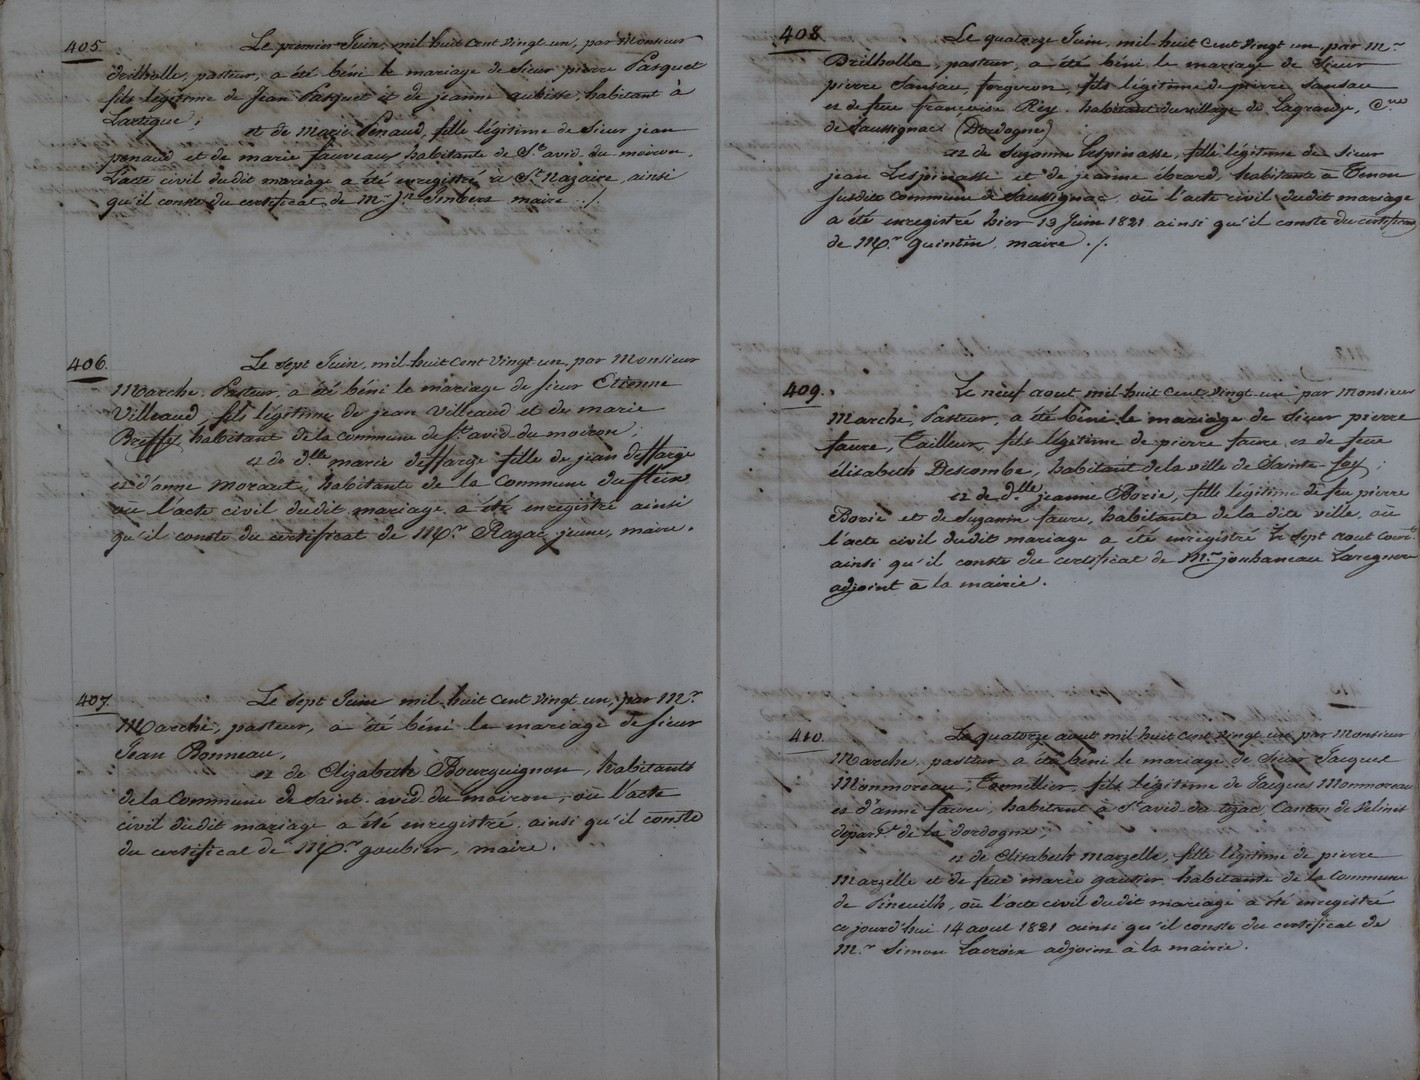 405. Le premier Juin, mil huit cent vingt un, par Monsieur
Drilholle, pasteur, a été béni le mariage de Sieur pierre Pasquet
fils légitime de Jean Pasquet et de jeanne aubisse, habitant à
Lartigue;
et de Marie Penaud, fille légitime de Sieur jean
penaud et de marie fauveau, habitante de St avid du moiron.
L'acte civil dudit mariage a été enregistré à St Nazaire, ainsi
qu'il conste du certificat de Mr jn Imbert maire ./.
406. Le sept Juin, mil huit cent vingt un, par Monsieur
Marche, Pasteur, a été béni le mariage de sieur Etienne
Villeaud, fils légitime de jean Villeaud et de marie
Breffy habitant de la commune de St avid du moiron;
et de dlle marie deffarge fille de jean deffarge
et d'anne moraut, habitante de la commune du fleix
où l'acte civil dudit mariage a été enregistré ainsi
qu'il conste du certificat de Mr Razac jeune, maire.
407. Le sept Juin mil huit cent vingt un, par Mr
Marche, pasteur, a été béni le mariage de sieur
Jean Bonneau,
et de Elizabeth Bourguignon, habitants
de la Commune de Saint avid du moiron, où l'acte
civil dudit mariage a été enregistré ainsi qu'il conste
du certificat de Mr goubier, maire.
408. Le quatorze Juin, mil huit cent vingt un, par Mr
Drilholle, pasteur, a été béni le mariage de Sieur
pierre Sansau, forgeron, fils légitime de pierre Sansau
et de feue françoise Rey habitant du village de Lagrange, Cne
de Saussignac (Dordogne)
et de Suzanne Lespinasse, fille légitime de sieur
jean Lespinasse et de jeanne ébrard, habitante à
susdite commune de Saussignac où l'acte civil dudit mariage
a été enregistré hier 13 Juin 1821 ainsi qu'il conste du certificat
de Mr Quintin maire ./.
409. Le neuf aout mil huit cent vingt un par Monsieur
Marche, Pasteur, a été béni le mariage de Sieur pierre
faure, Tailleur, fils légitime de pierre faure et de feue
élisabeth Descombe, habitant de la ville de Sainte-foy;
et de dlle jeanne Borie, fille légitime de feu pierre
Borie et de Suzanne faure, habitante de la dite ville, où
l'acte civil dudit mariage a été enregistré le sept aout courrt
ainsi qu'il conste du certificat de Mr jouhaneau Laregnere
adjoint à la mairie.
410. Le quatorze aout mil huit cent vingt un par Monsieur
Marche, pasteur a été béni le mariage de Sieur Jacques
Monmoreau, Tormillier, fils légitime de Jacques Monmoreau
et d'anne faure, habitant à St avid du tizac, Canton de Velines
départt de la dordogne,
et de Elisabeth Marzelle, fille légitime de pierre
Marzelle et de feue marie gautier habitante de la Commune
de Pineuilh, où l'acte civil dudit mariage a été enregistré
ce jourd'hui 14 aout 1821 ainsi qu'il conste du certificat de
Mr Simon Lacroix adjoint à la mairie.